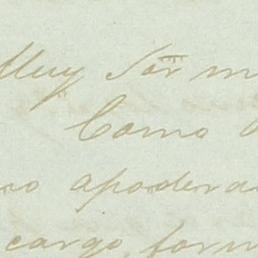 Muy Sor m
Como
so apodera
cargo, form